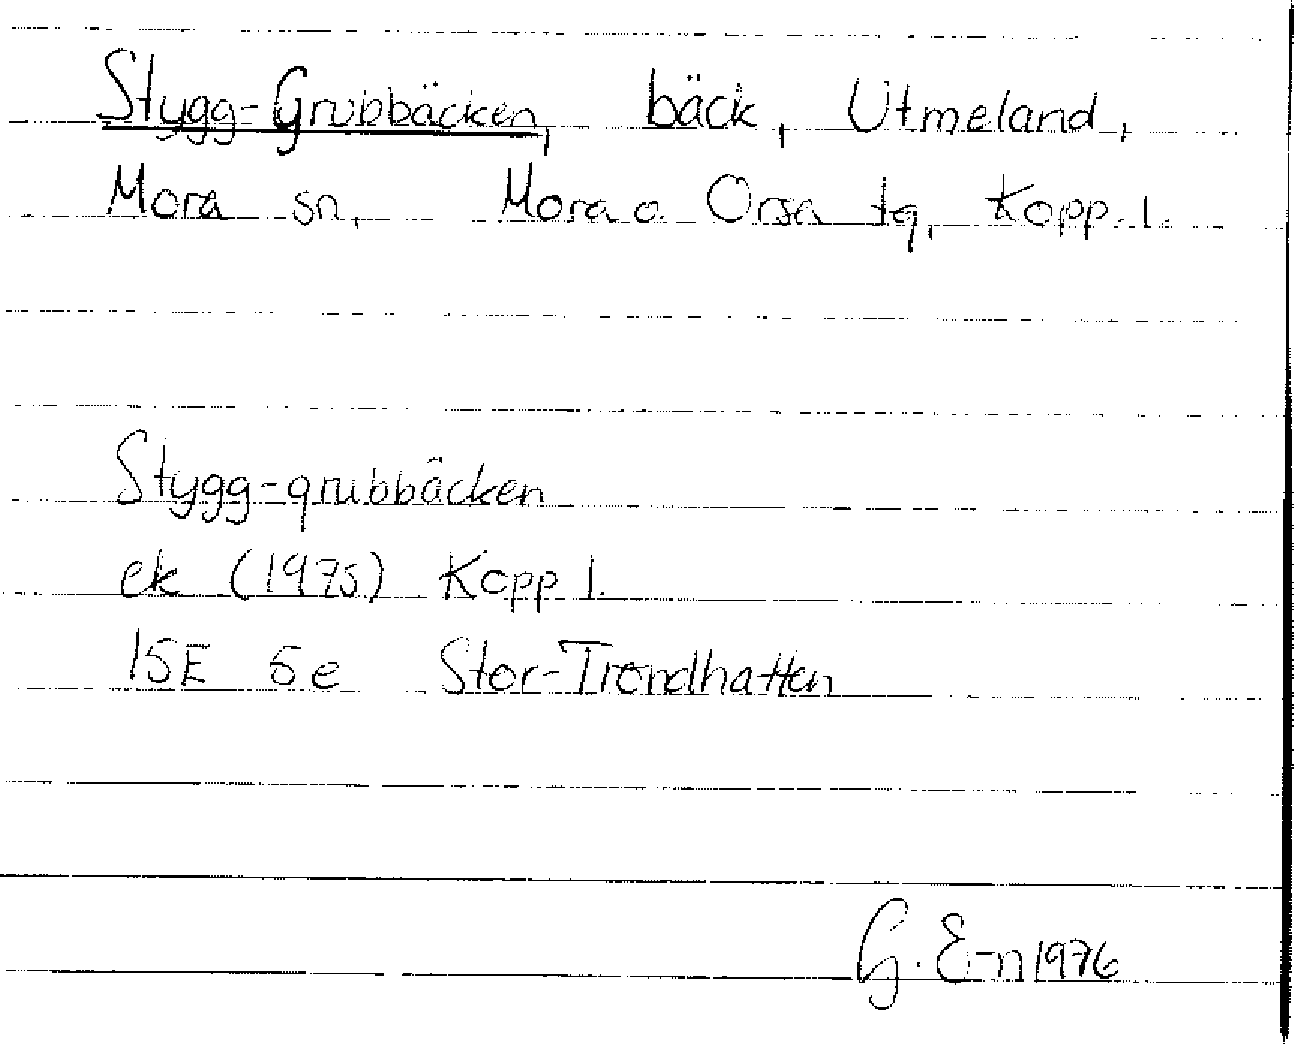 Stygg-Grubbäcken, bäck, Utmeland,
Mora sn, Mora o. Orsa tg, Kopp. l.
Stygg-grubbäcken
ek (1975) Kopp l.
15E 5e Stor-Trondhatten
G. E-n 1976